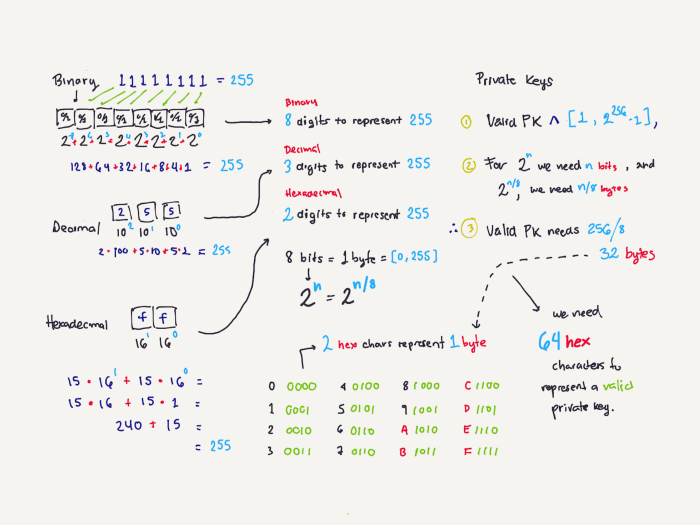 Binary 11111111 = 255
0/1 0/1 0/1 0/1 0/1 0/1 0/1 0/1
2^7+2^6+2^5+2^4+2^3+2^2+2^1+2^0
128+64+32+16+8+4+1 = 255
Decimal
2 5 5
10^2 10^1 10^0
2·100+5·10+5·1 = 255
Hexadecimal
f f
16^1 16^0
15 · 16^1 + 15 · 16^0 =
15 · 16 + 15 · 1 =
240 + 15 =
= 255
Binary
8 digits to represent 255
Decimal
3 digits to represent 255
Hexadecimal
2 digits to represent 255
8 bits = 1 byte = [0,255]
2^n = 2^n/8
2 hex chars represent 1 byte
0 0000 4 0100 8 1000 C 1100
1 0001 5 0101 9 1001 D 1101
2 0010 6 0110 A 1010 E 1110
3 0011 7 0110 B 1011 F 1111
Private Keys
1 Valid PK ∧ [1, 2^256-1],
2 For 2^n we need n bits, and
2^n/8, we need n/8 bytes
∴ 3 Valid PK needs 256/8
32 bytes
we need
64 hex
characters to
represent a valid
private key.